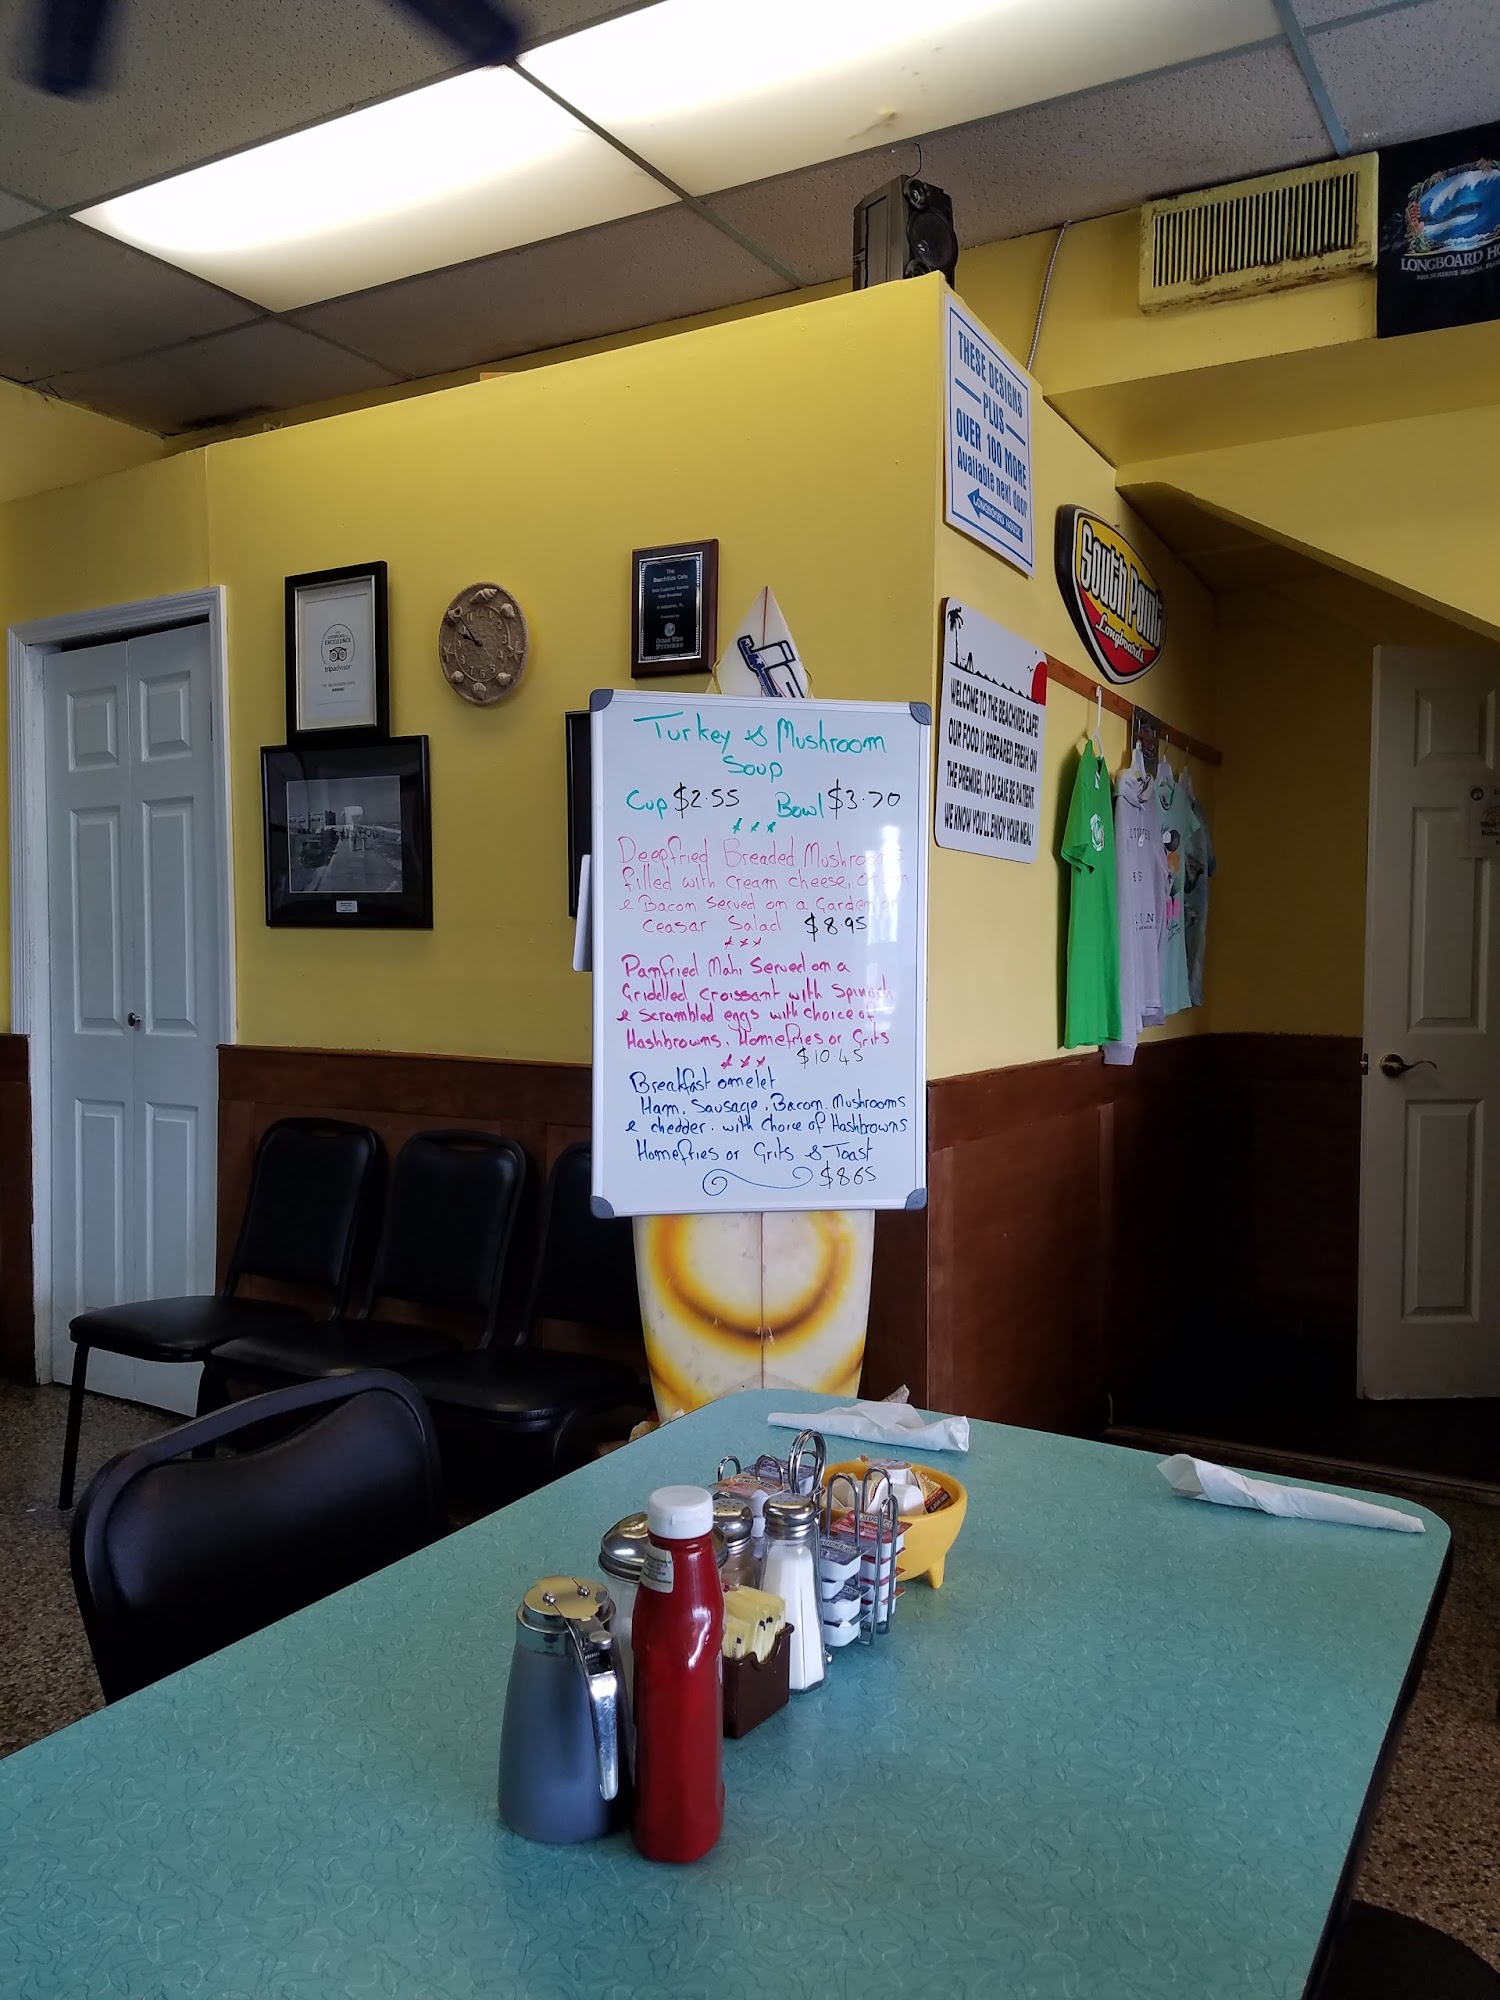 LONGBOARD
MELBOURNE BEACH,
THESE DESIGNS
PLUS
OVER 100 MORE
Available next door
LONGBOARD HOUSE
South Point
Longboards
WELCOME TO THE BEACHSIDE CAFE!
OUR FOOD IS PREPARED FRESH ON
THE PREMISES, SO PLEASE BE PATIENT
WE KNOW YOU'LL ENJOY YOUR MEAL!
The
BeachSide Cafe
Best Customer Service
Best Breakfast
EXCELLENCE
tripadvisor
Turkey & Mushroom
Soup
Cup $2.55 Bowl $3.70
Deepfried Breaded Mushrooms
filled with cream cheese,
& Bacon Served on a Garden or
Ceasar Salad $8.95
Panfried Mahi Served on a
Griddled croissant with Spinach
& Scrambled eggs with choice of
Hashbrowns, Homefries or Grits
$10.45
Breakfast omelet
Ham, Sausage, Bacon, Mushrooms
& chedder. with choice of Hashbrowns
Homefries or Grits & Toast
$8.65